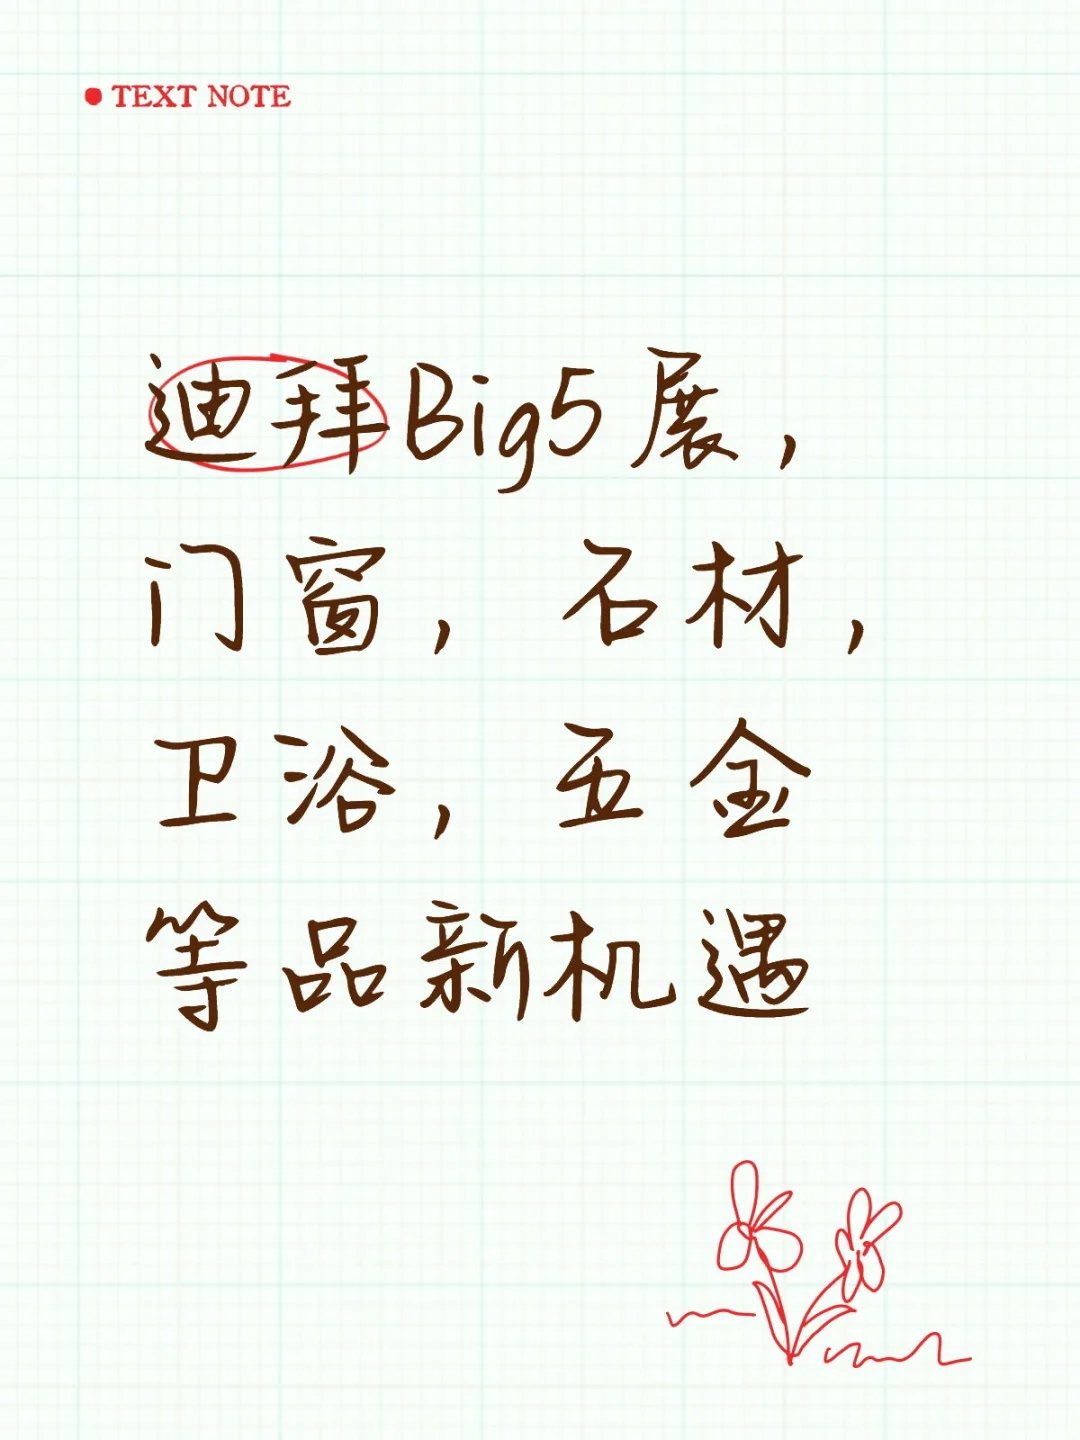 TEXT NOTE
迪拜Big5展，
门窗，石材，
卫浴，五金
等品新机遇